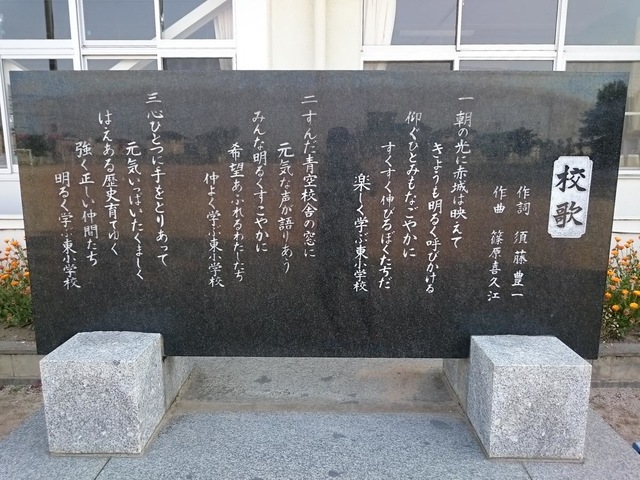 校歌
作詞 須藤豊一
作曲 篠原喜久江
一 朝の光に赤城は映えて
きょうも明るく呼びかける
仰ぐひとみもなごやかに
すくすく伸びるぼくたちだ
楽しく学ぶ東小学校
二 すんだ青空校舎の窓に
元気な声が語りあう
みんな明るくすこやかに
希望あふれるわたしたち
仲よく学ぶ東小学校
三 心ひとつに手をとりあって
元気いっぱいたくましく
はえある歴史育てゆく
強く正しい仲間たち
明るく学ぶ東小学校